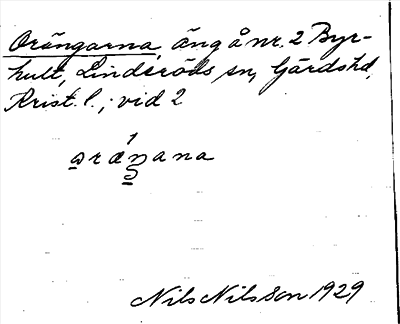 Orängarna, äng å nr. 2 Byr-
hult, Linderöds sn, Gärds hd,
Krist. l.; vid 2
Nils Nilsson 1929